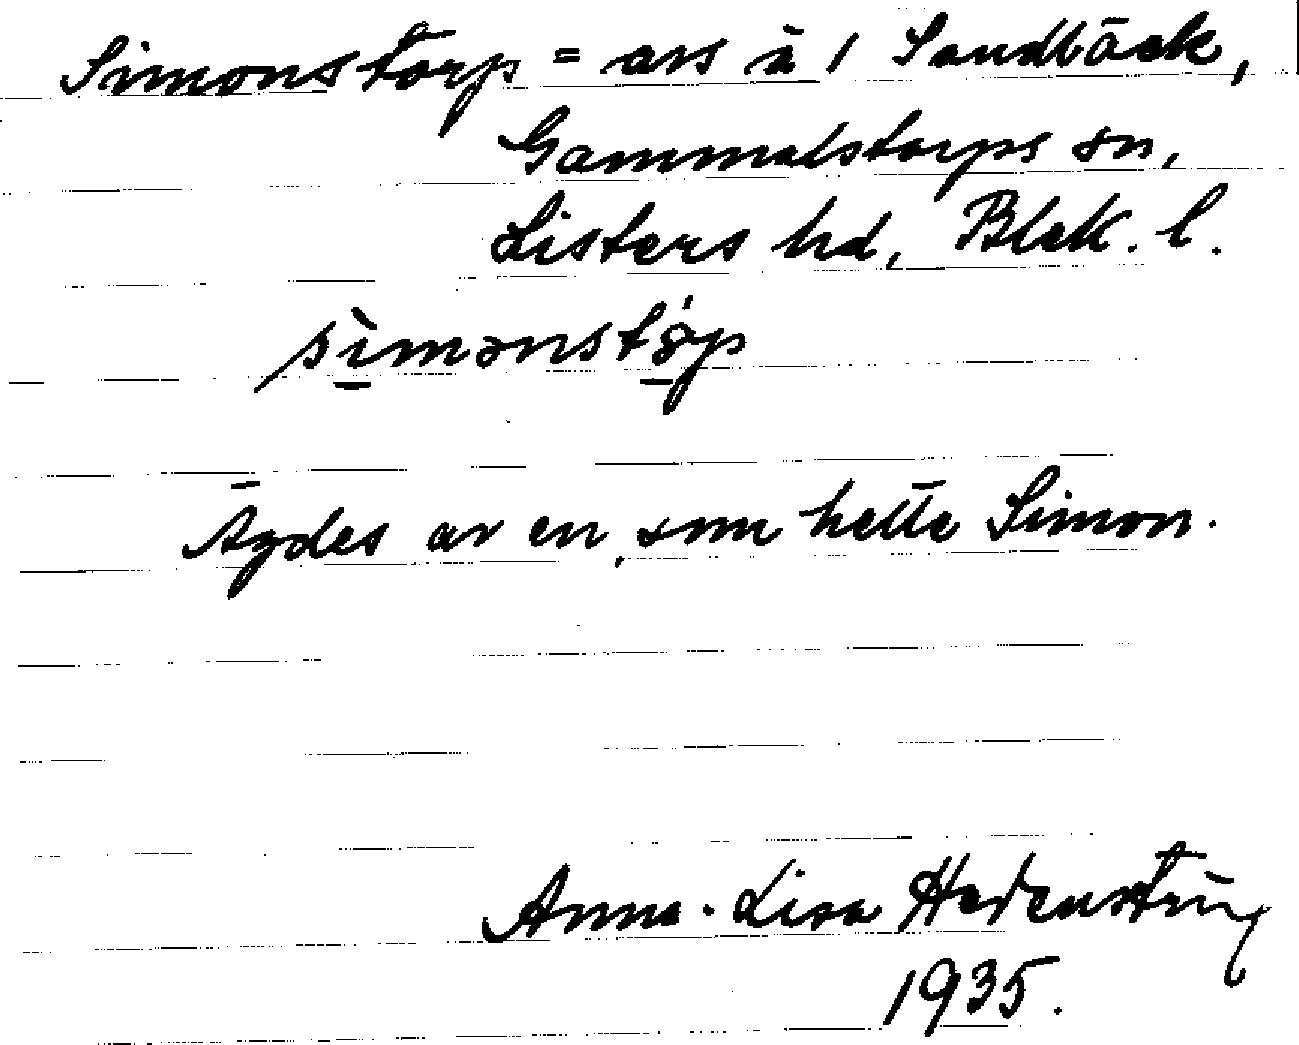 Simonstorp = avs å 1 Sandbäck,
Gammalstorps sn,
Listers hd, Blek. l.
sìmɔnstǫ́p
Ägdes av en, som hette Simon.
Anna-Lisa
1935.